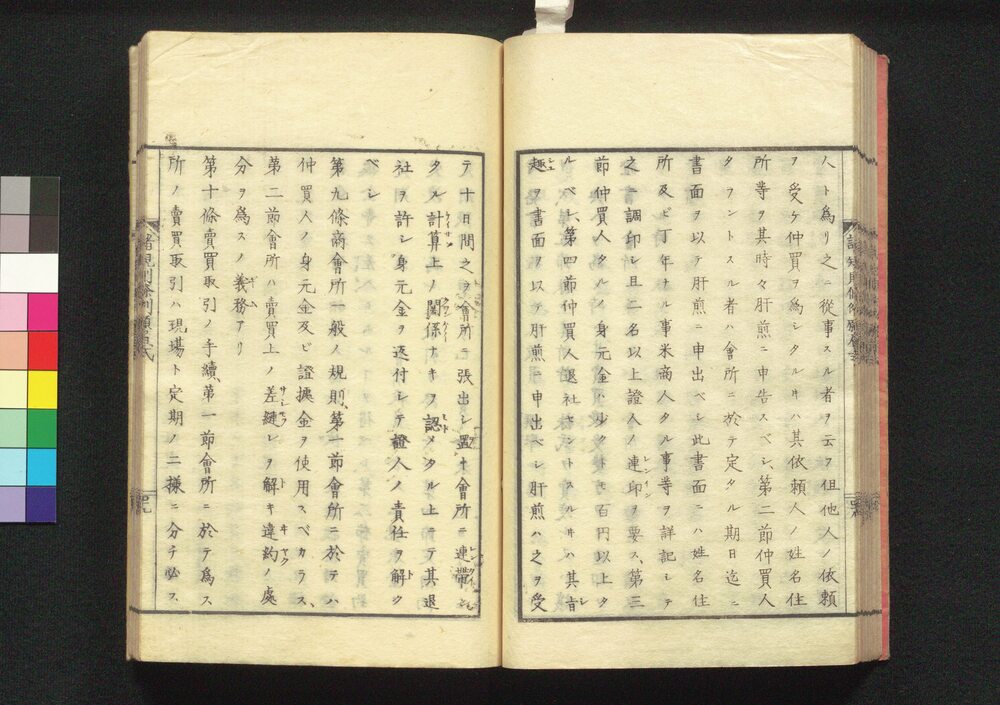 人ト為リ之ニ從事スル者ヲ云フ但他人ノ依頼
ヲ受ケ仲買ヲ為シタルキハ其依頼人ノ姓名住
所等ヲ其時々肝煎ニ申告スベシ、第二節仲買人
タラントスル者ハ會所ニ於テ定タル期日迄ニ
書面ヲ以テ肝煎ニ申出ベシ此書面ニハ姓名住
所及ビ丁年ナル事米商人タル事等ヲ詳記シテ
之ニ調印シ且二名以上證人ノ連印ヲ要ス、第三
節仲買人タルノ身元金ハ少クトモ百円以上タ
ルベシ、第四節仲買人退社セントスルキハ其旨
趣ヲ書面ヲ以テ肝煎ニ申出ベシ肝煎ハ之ヲ受
テ十日間之ヲ會所ニ張出シ置キ會所ニ連帶シ
タル計算上ノ関係ナキヲ認メタル上ニテ其退
社ヲ許シ身元金ヲ返付シテ證人ノ責任ヲ解ク
ベシ
第九條商會所一般ノ規則、第一節會所ニ於テハ
仲買人ノ身元金及ビ證據金ヲ使用スベカラス、
第二節會所ハ賣買上ノ差縺レヲ解キ違約ノ處
分ヲ為スノ義務アリ
第十條賣買取引ノ手續、第一節會所ニ於テ為ス
所ノ賣買取引ハ現場ト定期ノ二樣ニ分チ必ス